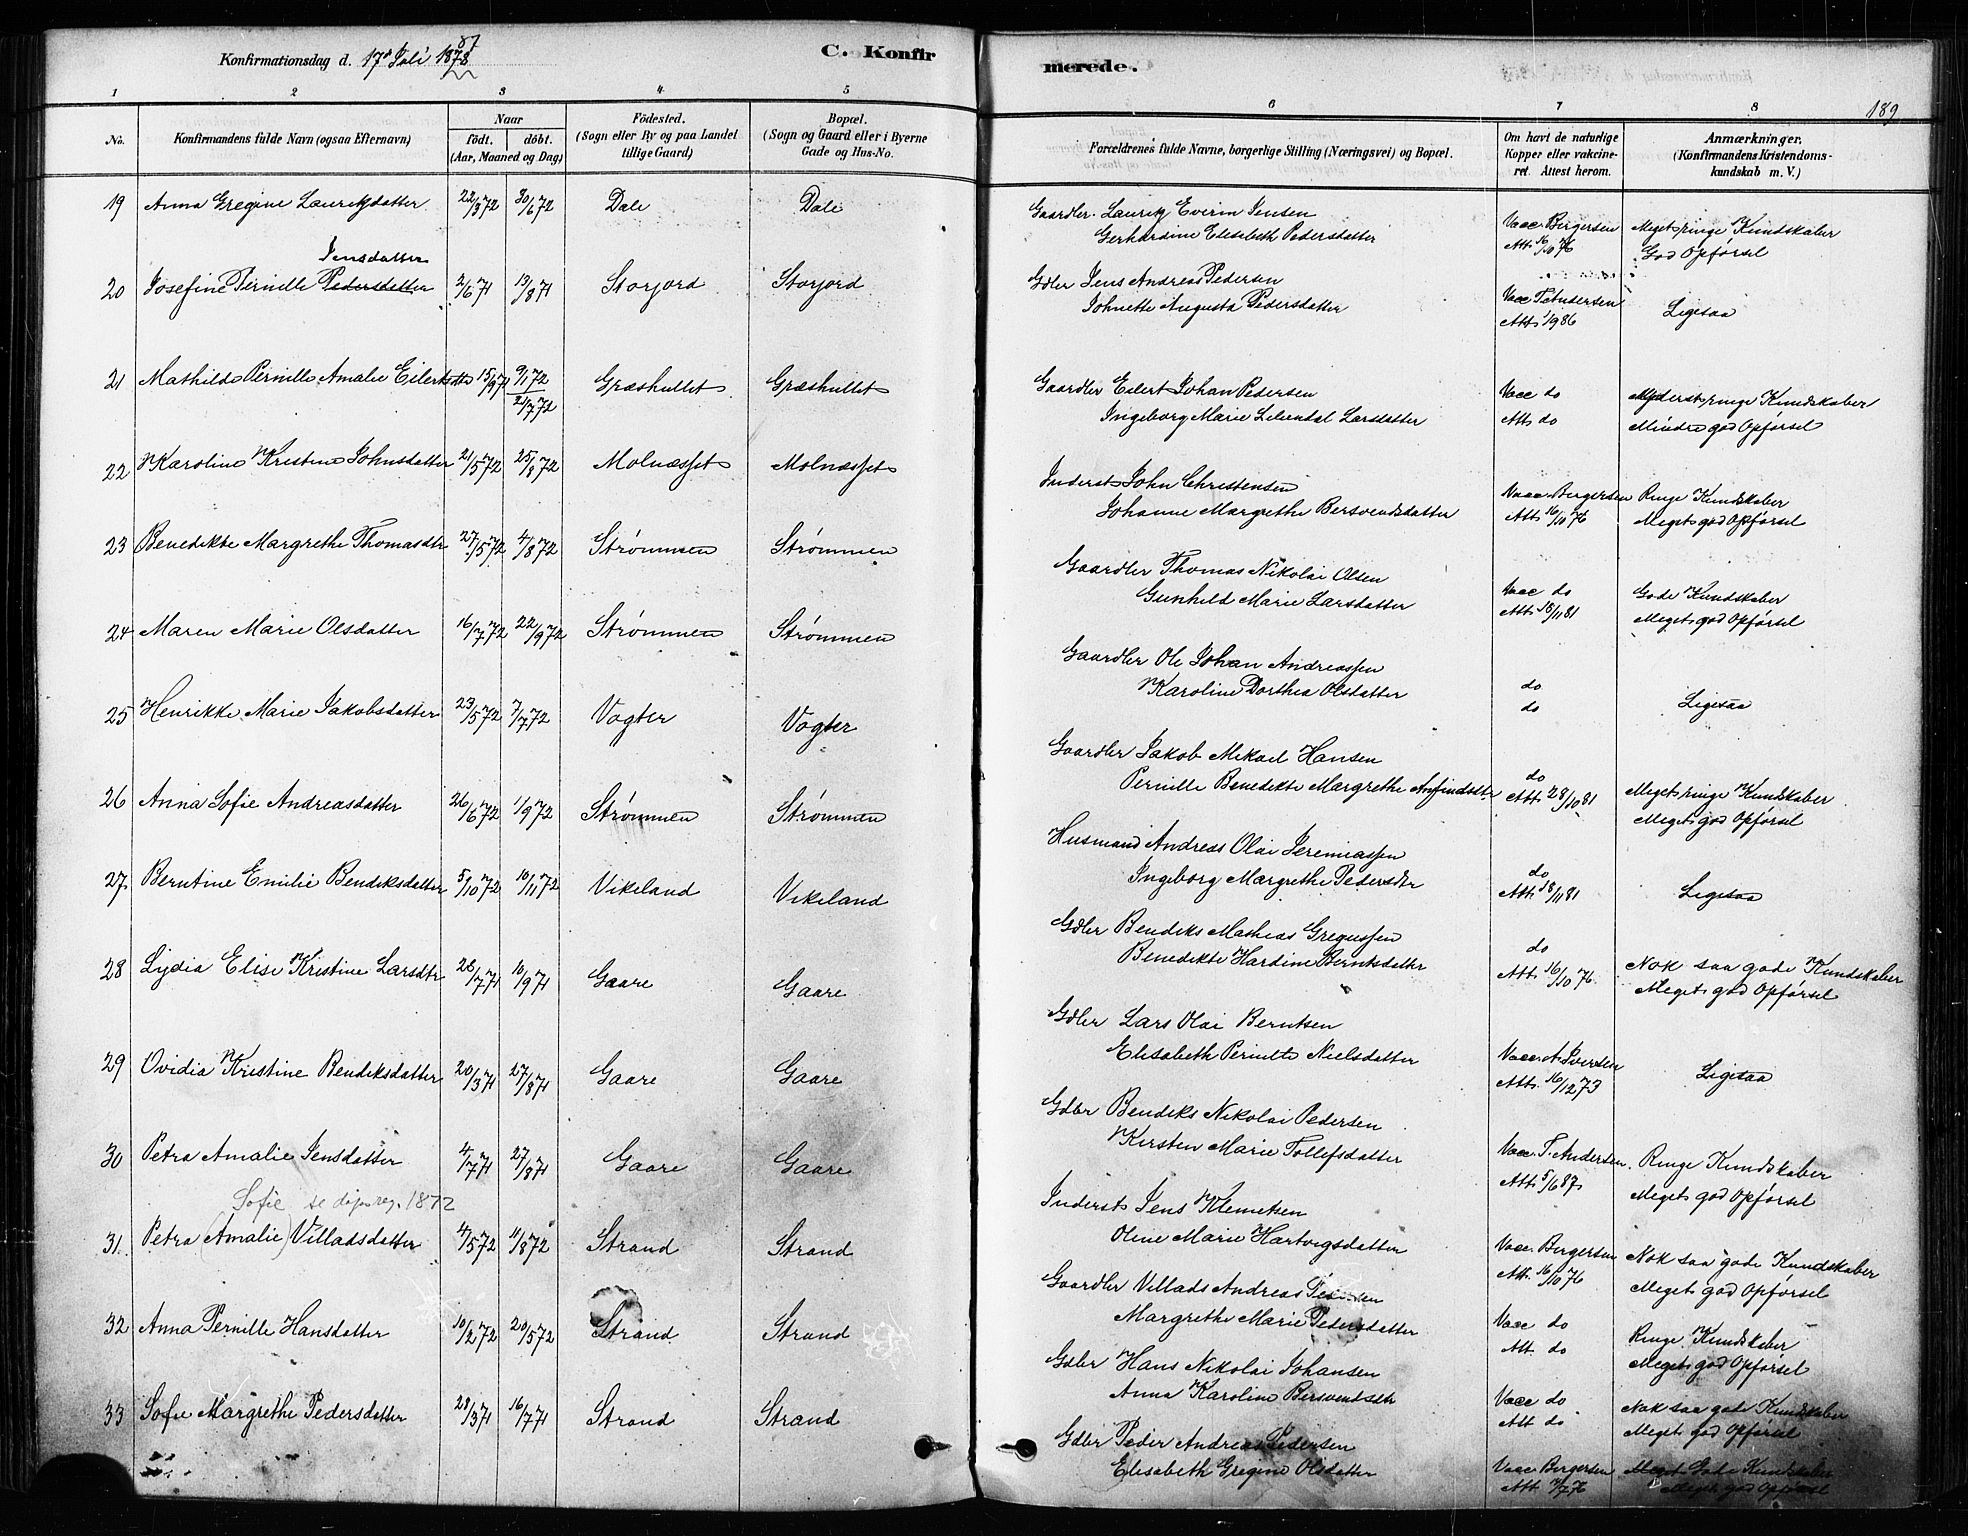 Konfirmationsdag d. 17de Juli 1887
C. Konfirmerede.
189
1 2 3 4 5 6 7 8
No.
Konfirmandens fulde Navn (ogsaa Efternavn)
Naar
født. døbt.
(Aar, Maaned og Dag)
Fødested.
(Sogn eller By og paa Landet tillige Gaard)
Bopæl.
(Sogn og Gaard eller i Byerne Gade og Hus-No.
Forældrenes fulde Navne, borgerlige Stilling (Næringsvei) og Bopæl.
Om havt de naturlige Kopper eller vakcineret. Attest herom.
Anmærkninger.
(Konfirmandens Kristendomskundskab m. V.)
19 Anna Gregine Lauritzdatter 22/3 72 30/6 72 Dale Dale
Gaardbr. Lauritz Evirin Jensen
Gerhardine Elisebeth Pedersdatter
Vacc. Bergersen
Att. 16/10 76
Meget ringe Kundskaber
God Opførsel
Jensdatter
20 Josefine Pernille Pedersdatter 2/6 71 13/8 71 Storjord Storjord
Gdbr Jens Andreas Pedersen
Johnette Augusta Pedersdatter
Vacc T. Andersen
Att. 1986
Ligesaa
21 Mathilde Pernille Amalie Eilertsdtr 15/9 71 9/1 72 Græshullet Græshullet
21/7 72
Gaardbr Eilert Johan Pedersen
Ingeborg Marie Liliendal Larsdatter
Vacc do
Att do
Myderst ringe Kundskaber
Mindre god Opførsel
22 Karoline Kristine Johnsdatter 21/5 72 25/8 72 Molnæsset Molnæsset
Inderst John Christensen
Johanne Margrethe Bersvendsdatter
Vacc. Bergersen
Att. 16/10 76
Ringe Kundskaber
Meget god Opførsel
23 Benedikte Margrethe Thomasdtr 27/5 72 4/8 72 Strømmen Strømmen
Gaardbr Thomas Nikolai Olsen
Gunhild Marie Larsdatter
Vacc do
Att. 18/11 81
Gode Kundskaber
Meget god Opførsel
24 Maren Marie Olsdatter 16/7 72 22/9 72 Strømmen Strømmen
Gaardbr Ole Johan Andreassen
Karoline Dorthea Olsdatter
do
do
Ligesaa
25 Henrikke Marie Jakobsdatter 23/5 72 7/7 72 Vogter Vogter
Gaardbr Jakob Mikael Hansen
Pernille Benedikte Margrethe Anfindsdtr
do
Att. 28/10 81
Meget ringe Kundskaber
Meget god Opførsel
26 Anna Sofie Andreasdatter 26/6 72 1/9 72 Strømmen Strømmen
Husmand Andreas Olai Jeremiassen
Ingeborg Margrethe Pedersdtr
do
Att. 18/11 81
Ligesaa
27 Berntine Emilie Bendiksdatter 5/10 72 10/11 72 Vikeland Vikeland
Gdbr Bendiks Mathias Gregussen
Benedikte Hardine Berntsdatter
do
Att. 16/10 76
Nok saa gode Kundskaber
Meget god Opførsel
28 Lydia Elise Kristine Larsdtr 28/7 71 10/9 71 Gaare Gaare
Gdbr Lars Olai Berntsen
Elisabeth Pernille Nielsdatter
Vacc. A. Iversen
Att. 16/12 73
Ligesaa
29 Ovidia Kristine Bendiksdatter 20/3 71 27/8 71 Gaare Gaare
Gdbr Bendiks Nikolai Pedersen
Kirsten Marie Tollefsdatter
Vacc. T. Andersen
Att. 5/6 87
Ringe Kundskaber
Meget god Opførsel
30 Petra Amalie Jensdatter 4/7 71 27/8 71 Gaare Gaare
Inderst Jens Klemetsen
Oline Marie Hartvigsdatter
Vacc. Bergersen
Att. 16/10 76
Nok saa gode Kundskaber
Meget god Opførsel
Sofie se dåpsreg. 1872
31. Petra (Amalie) Villadsdatter 4/5 72 11/8 72 Strand Strand
Gaardbr Villads Andreas Pedersen
Margrethe Marie Pedersdatter
Vacc do
Att. do
Ringe Kundskaber
Meget god Opførsel
32 Anna Pernille Hansdatter 10/2 72 20/5 72 Strand Strand
Gdbr Hans Nikolai Johansen
Anna Karoline Bersvendsdtr
Vacc do
Att do
Nok saa gode Kundskaber
Meget god Opførsel
33 Sofie Margrethe Pedersdatter 28/3 71 16/7 71 Strand Strand
Gdbr Peder Andreas Pedersen
Elisabeth Gregine Olsdatter
Vacc Bergersen
Att.
Meget Gode Kundskaber
Meget god Opførsel